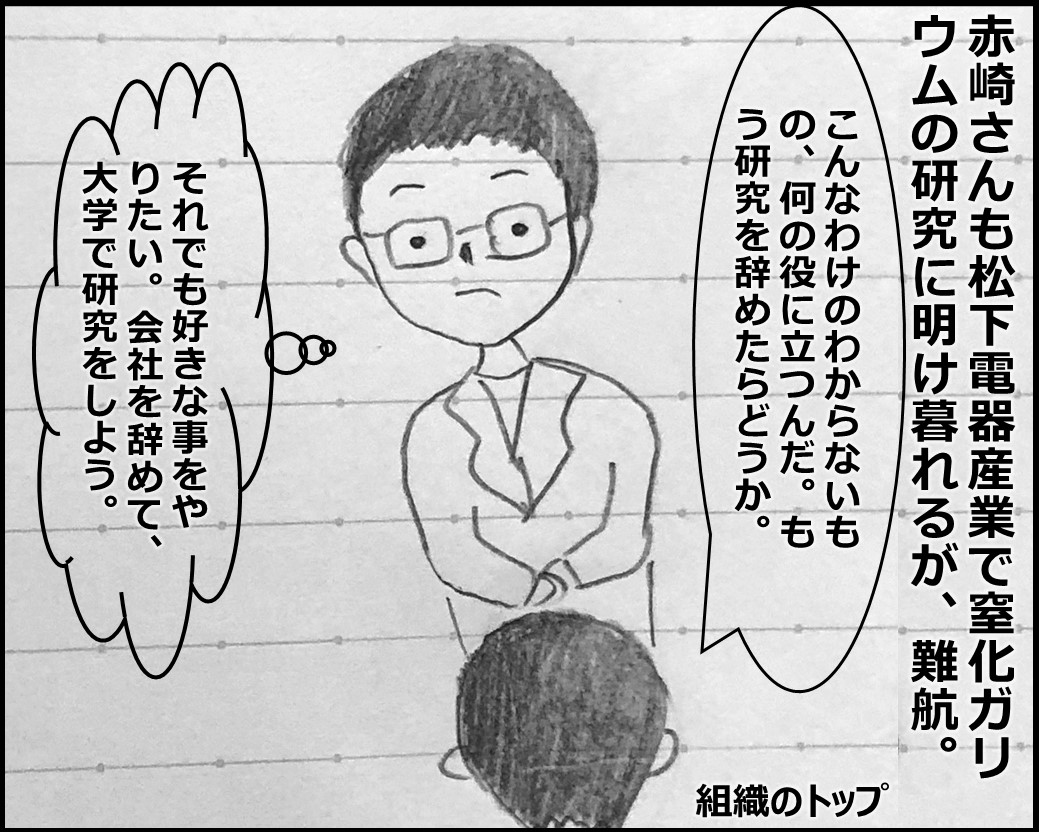 赤崎さんも松下電器産業で窒化ガリ
ウムの研究に明け暮れるが、難航。
こんなわけのわからないも
の、何の役に立つんだ。も
う研究を辞めたらどうか。
それでも好きな事をや
りたい。会社を辞めて、
大学で研究をしよう。
組織のトップ